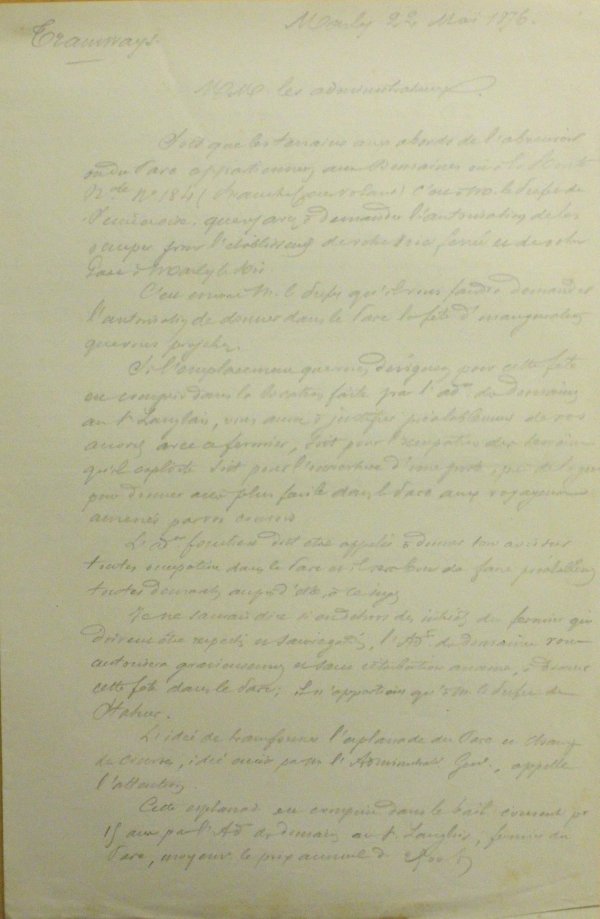 Tramways
Marly 22 Mai 1876.
M.M. les administrateurs.
Soit que les terrains aux abords de l'abreuvoir
ou du Parc appartiennent aux Domaines ou à la Route
Nle No 184 ( ) c'est à M. le Préfet de
Seine et Oise que vous avez à demander l'autorisation de les
occuper pour l'établissement de votre voie ferrée et de votre
gare à Marly le Roi.
C'est encore M. le Préfet qu'il vous faudra demander
l'autorisation de donner dans le Parc la fête d'inauguration
que vous projetez.
Si l'emplacement que vous désignez pour cette fête
est compris dans la location faite par l'adon des Domaines
au St Langlois, vous aurez à justifier préalablement de vos
accords avec ce fermier, soit pour l'occupation des terrains
qu'il exploite soit pour l'ouverture d'une porte
pour donner accès plus facile dans le Parc aux voyageurs
amenés par vos convois
L' don forestière doit être appelée à donner son avis sur
toutes occupations dans le Parc et faire préalablement
toutes demandes auprès d'elle, à ce sujet
Je ne saurais dire si en dehors des intérêts du fermier qui
doivent être respectés et sauvegardés, l'Adon des domaines vous
autorisera gracieusement et sans rétribution aucune, à donner
cette fête dans le Parc; Il n'appartient qu'à M. le Préfet de
statuer.
L'idée de transformer l'esplanade du Parc en champ
de courses, idée par M. l'Administr Genl, appelle
l'attention
Cette esplanade est comprise dans le bail consenti pr
15 ans par l'Adon des domaines au St Langlois, fermier du
Parc, moyennt le prix annuel de